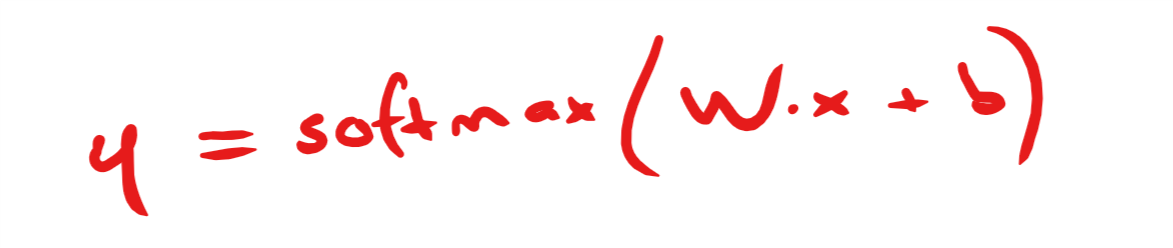 y = softmax(W·x + b)